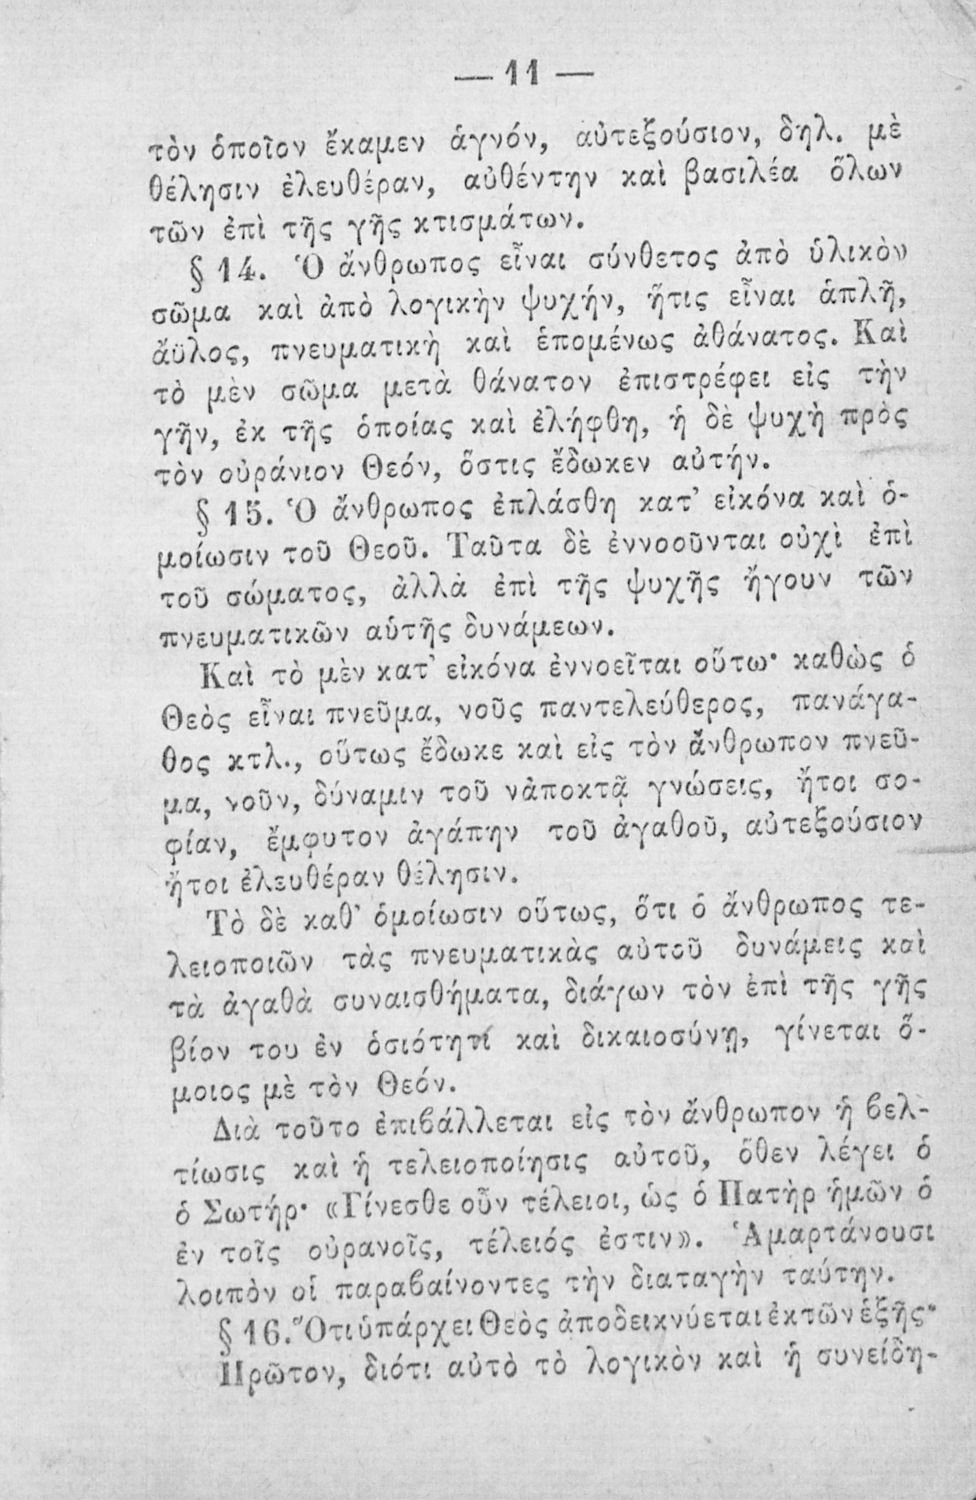 — 11 —
τὸν ὁποῖον ἔκαμεν ἁγνόν, αὐτεξούσιον, δηλ. μὲ
θέλησιν ἐλευθέραν, αὐθέντην καὶ βασιλέα ὅλων
τῶν ἐπὶ τῆς γῆς κτισμάτων.
§ 14. Ὁ ἄνθρωπος εἶναι σύνθετος ἀπὸ ὑλικὸν
σῶμα καὶ ἀπὸ λογικὴν ψυχήν, ἥτις εἶναι ἁπλῆ,
ἄϋλος, πνευματικὴ καὶ ἑπομένως ἀθάνατος. Καὶ
τὸ μὲν σῶμα μετὰ θάνατον ἐπιστρέφει εἰς τὴν
γῆν, ἐκ τῆς ὁποίας καὶ ἐλήφθη, ἡ δὲ ψυχὴ πρὸς
τὸν οὐράνιον Θεόν, ὅστις ἔδωκεν αὐτήν.
§ 15. Ὁ ἄνθρωπος ἐπλάσθη κατ’ εἰκόνα καὶ ὁ-
μοίωσιν τοῦ Θεοῦ. Ταῦτα δὲ ἐννοοῦνται οὐχὶ ἐπὶ
τοῦ σώματος, ἀλλὰ ἐπὶ τῆς ψυχῆς ἤγουν τῶν
πνευματικῶν αὐτῆς δυνάμεων.
Καὶ τὸ μὲν κατ’ εἰκόνα ἐννοεῖται οὕτω· καθὼς ὁ
Θεὸς εἶναι πνεῦμα, νοῦς παντελεύθερος, πανάγα-
θος κτλ., οὕτως ἔδωκε καὶ εἰς τὸν ἄνθρωπον πνεῦ-
μα, νοῦν, δύναμιν τοῦ νἀποκτᾷ γνώσεις, ἤτοι σο-
φίαν, ἔμφυτον ἀγάπην τοῦ ἀγαθοῦ, αὐτεξούσιον
ἤτοι ἐλευθέραν θέλησιν.
Τὸ δὲ καθ’ ὁμοίωσιν οὕτως, ὅτι ὁ ἄνθρωπος τε-
λειοποιῶν τὰς πνευματικὰς αὐτοῦ δυνάμεις καὶ
τὰ ἀγαθὰ συναισθήματα, διάγων τὸν ἐπὶ τῆς γῆς
βίον του ἐν ὁσιότητί καὶ δικαιοσύνῃ, γίνεται ὅ-
μοιος μὲ τὸν Θεόν.
Διὰ τοῦτο ἐπιβάλλεται εἰς τὸν ἄνθρωπον ἡ βελ-
τίωσις καὶ ἡ τελειοποίησις αὐτοῦ, ὅθεν λέγει ὁ
ὁ Σωτήρ· «Γίνεσθε οὖν τέλειοι, ὡς ὁ Πατὴρ ἡμῶν ὁ
ἐν τοῖς οὐρανοῖς, τέλειός ἐστιν». Ἁμαρτάνουσι
λοιπὸν οἱ παραβαίνοντες τὴν διαταγὴν ταύτην.
§ 16. Ὅτι ὑπάρχει Θεὸς ἀποδεικνύεται ἐκ τῶν ἑξῆς·
Πρῶτον, διότι αὐτὸ τὸ λογικὸν καὶ ἡ συνείδη-